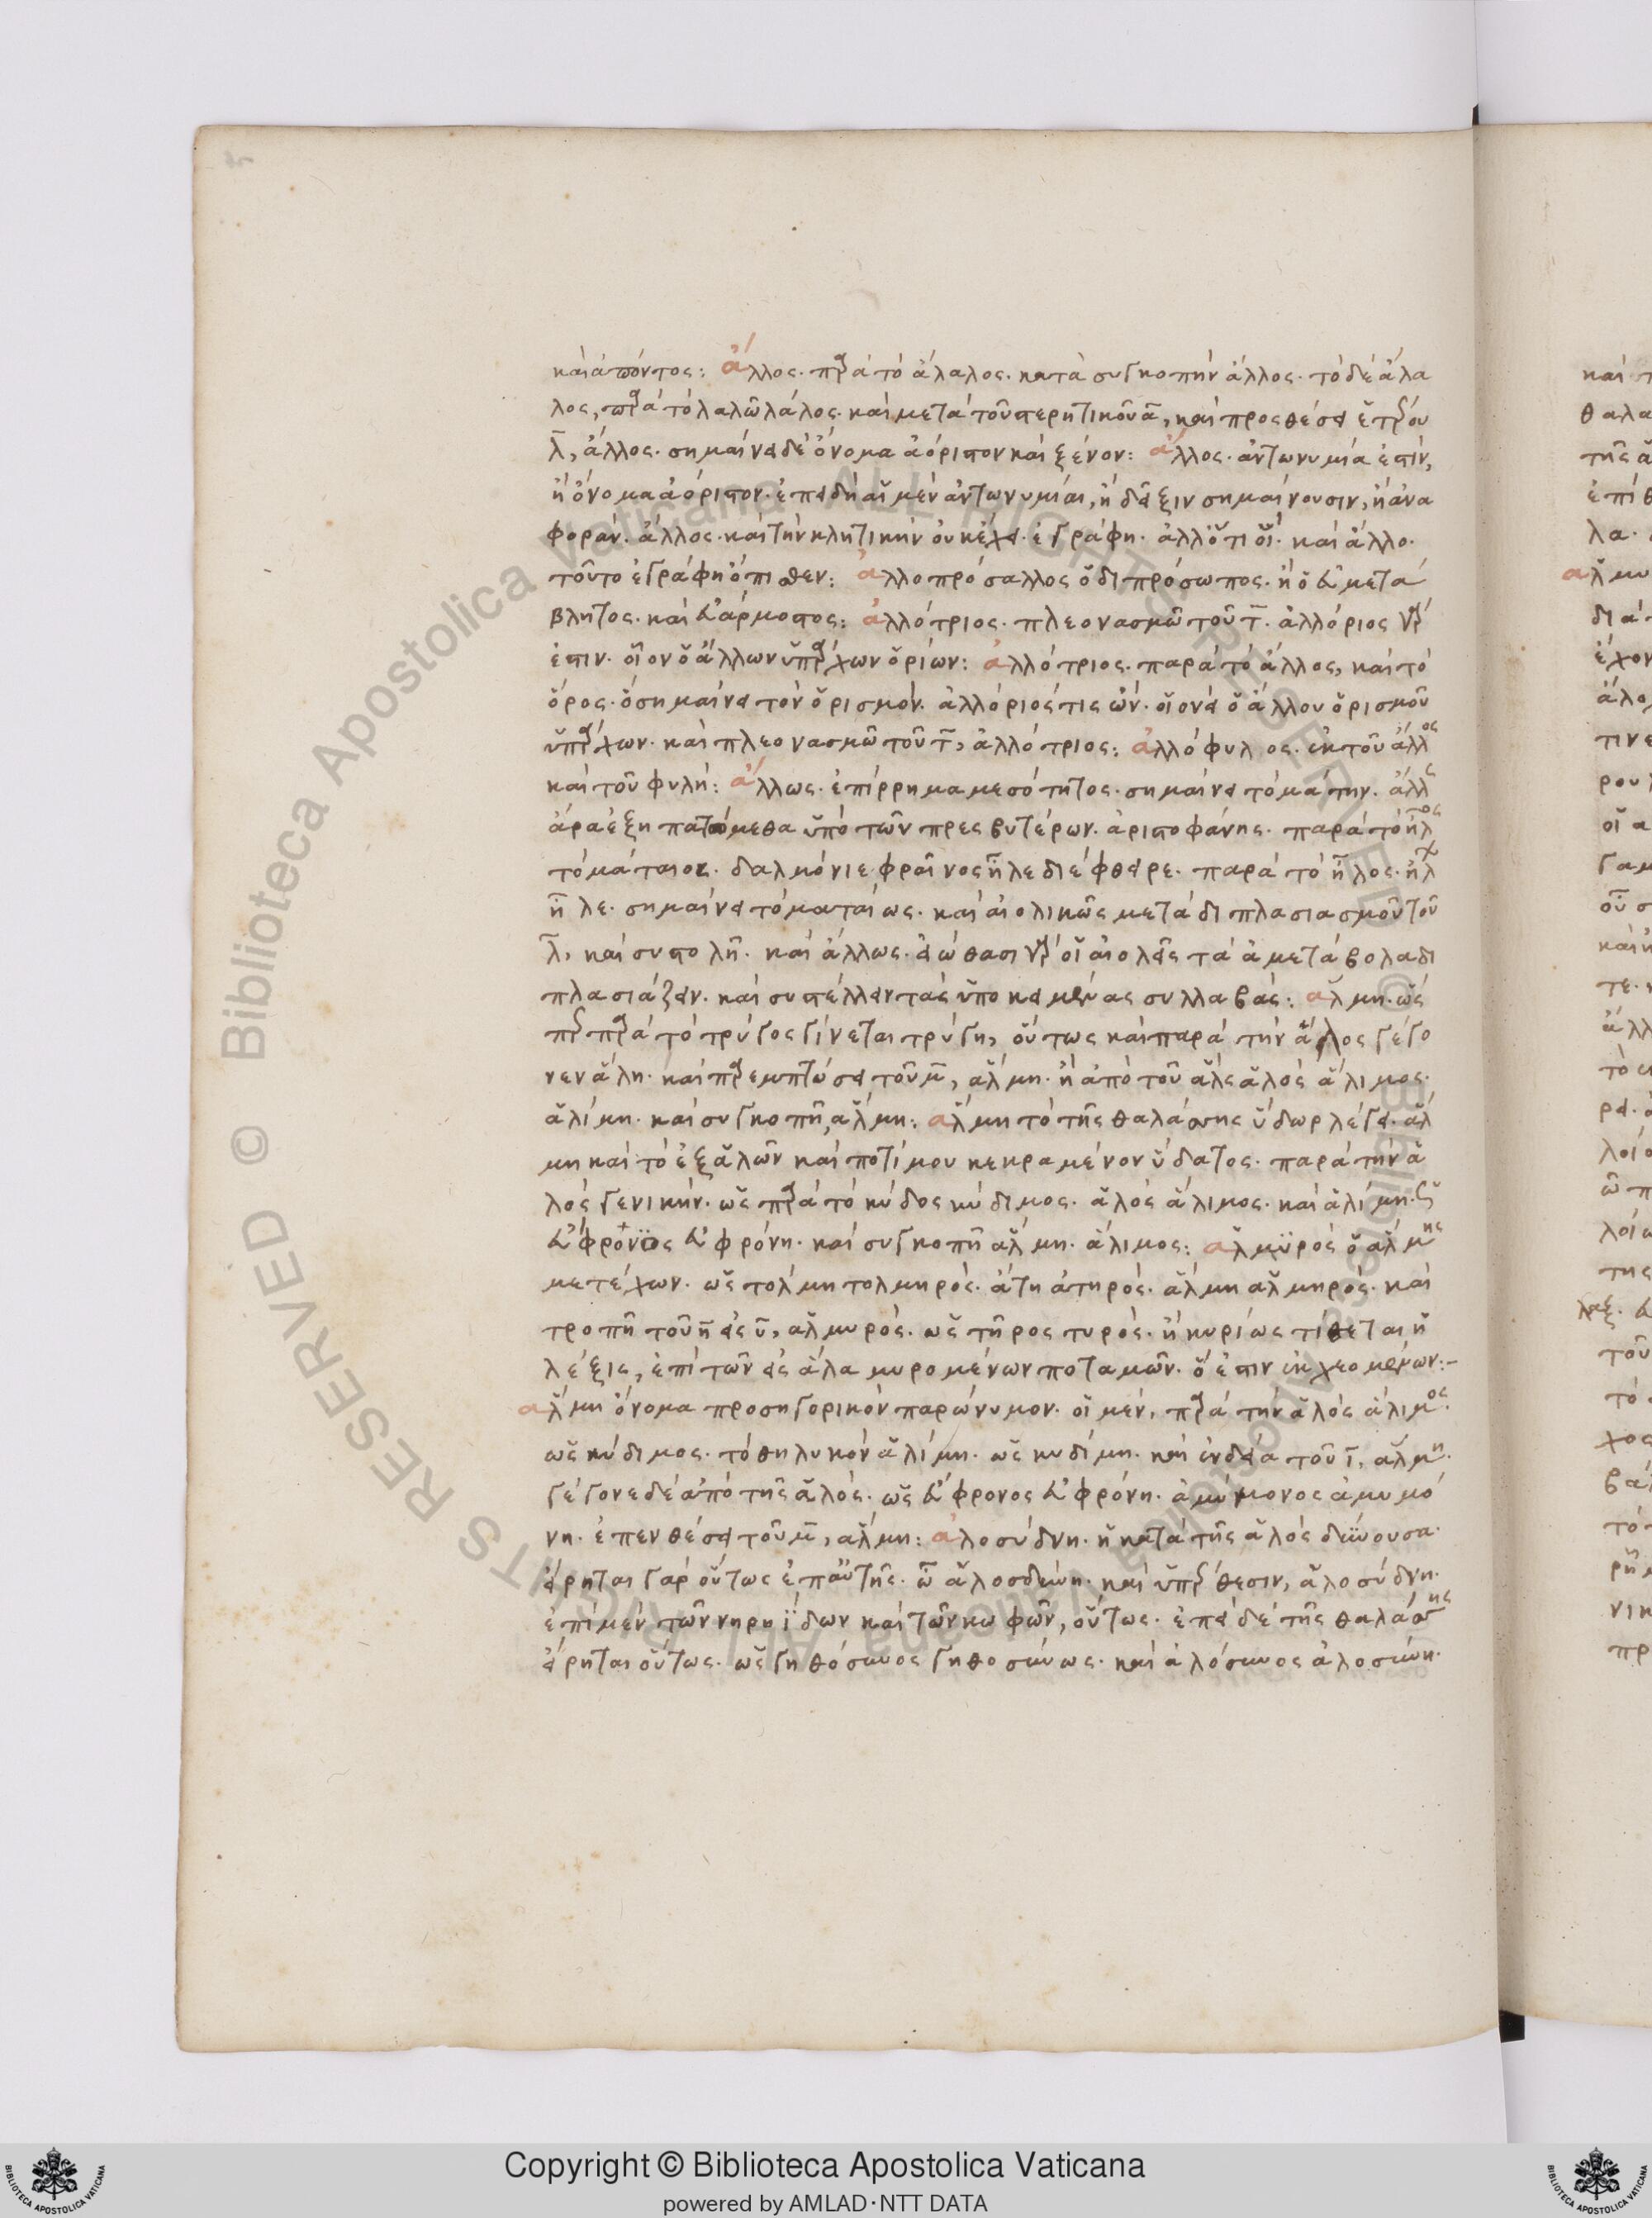 καὶ ἄποντος: ἄλλος. παρὰ τὸ ἄλαλος. κατὰ συγκοπὴν ἄλλος. τὸ δὲ ἄλα
λος, παρὰ τὸ λαλῶ λάλος. καὶ μετὰ τοῦ στερητικοῦ α, καὶ προσθέσει ἑτέρου
λ, ἄλλος. σημαίνει δὲ ὄνομα ἀόριστον καὶ ξένον: ἄλλος. ἀντωνυμία ἐστὶν,
ἢ ὄνομα ἀόριστον. ἐπειδὴ αἱ μὲν ἀντωνυμίαι, ἢ δεῖξιν σημαίνουσιν, ἢ ἀνα
φοράν. ἄλλος. καὶ τὴν κλητικὴν οὐκ ἔχει. ἐγράφη. ἀλλ' ὅτι οἷ. καὶ ἄλλο.
τοῦτο ἐγράφη ὄπισθεν: ἀλλοπρόσαλλος ὁ διπρόσωπος. ἢ ὁ εὐμετά
βλητος. καὶ εὐάρμοστος: ἀλλότριος. πλεονασμῶ τοῦ τ. ἀλλόριος γάρ
ἐστιν. οἷον ὁ ἄλλων ὑπάρχων ὁρίων: ἀλλότριος. παρὰ τὸ ἄλλος, καὶ τὸ
ὅρος. ὃ σημαίνει τὸν ὁρισμόν. ἀλλόριός τις ὤν. οἱονεὶ ὁ ἄλλου ὁρισμοῦ
ὑπάρχων. καὶ πλεονασμῶ τοῦ τ, ἀλλότριος: ἀλλόφυλος. ἐκ τοῦ ἄλλος
καὶ τοῦ φυλή: ἄλλως. ἐπίρρημα μεσότητος. σημαίνει τὸ μάτην. ἄλλως
ἄρα ἐξηπατόμεθα ὑπὸ τῶν πρεσβυτέρων. ἀριστοφάνης. παρὰ τὸ ἠλὸς
τὸ μάταιος. δαιμόνιε φραῖνος ἦλε διέφθειρε. παρὰ τὸ ἦλος.
ἦλε. σημαίνει τὸ ματαίως. καὶ αἰολικῶς μετὰ διπλασιασμοῦ τοῦ
λ, καὶ συστολῆ. καὶ ἄλλως. εἰώθασι γὰρ οἱ αἰολεῖς τὰ ἀμετάβολα δι
πλασιάζειν. καὶ συστέλλειν τὰς ὑποκειμένας συλλαβάς: ἅλμη. ὥς
περ παρὰ τὸ τρύγος γίνεται τρύγη, οὕτως καὶ παρὰ τὴν ἅλος γέγο
νεν ἅλη. καὶ παρεμπτώσει τοῦ μ, ἅλμη. ἢ ἀπὸ τοῦ ἃλς ἁλὸς ἅλιμος.
ἁλίμη. καὶ συγκοπῆ, ἅλμη: ἅλμη τὸ τῆς θαλάσσης ὕδωρ λέγει. ἅλ
μη καὶ τὸ ἐξ ἁλῶν καὶ ποτίμου κεκραμένον ὕδατος. παρὰ τὴν ἁ
λὸς γενικήν. ὡς παρὰ τὸ κύδος κύδιμος. ἁλὸς ἅλιμος. καὶ ἁλίμη. ὡς
εὔφρονος εὐφρόνη. καὶ συγκοπῆ ἅλμη. ἅλιμος: ἁλμϋρὸς ὁ ἅλμης
μετέχων. ὡς τολμη τολμηρός. ἄτη ἀτηρός. ἅλμη ἁλμηρός. καὶ
τροπῆ τοῦ η εἰς υ, ἁλμυρός. ὡς τῆρος τυρός. ἢ κυρίως τίθεται ἡ
λέξις, ἐπὶ τῶν εἰς ἅλα μυρομένων ποταμῶν. ὅ ἐστιν ἐκχεομένων:-
ἅλμη ὄνομα προσηγορικὸν παρώνυμον. οἱ μὲν, παρὰ τὴν ἁλὸς ἅλιμος.
ὡς κύδιμος. τὸ θηλυκὸν ἁλίμη. ὡς κυδίμη. καὶ ἐνδεία τοῦ ι, ἅλμη.
γέγονε δὲ ἀπὸ τῆς ἁλός. ὡς εὔφρονος εὐφρόνη. ἀμύμονος ἀμυμό
νη. ἐπενθέσει τοῦ μ, ἅλμη: ἁλοσύδνη. ἡ κατὰ τῆς ἁλὸς δύνουσα.
εἴρηται γὰρ οὕτως ἐπ' αὐτῆς. ὦ ἁλοσδύνη. καὶ ὑπέρθεσιν, ἁλοσύδνη.
ἐπὶ μὲν τῶν νηρηΐδων καὶ τῶν κωφῶν, οὕτως. ἐπεὶ δὲ τῆς θαλάσσης
εἴρηται οὕτως. ὡς γηθόσυνος γηθοσύνως. καὶ ἁλόσυνος ἁλοσύνη.
Copyright © Biblioteca Apostolica Vaticana
powered by AMLAD·NTT DATA